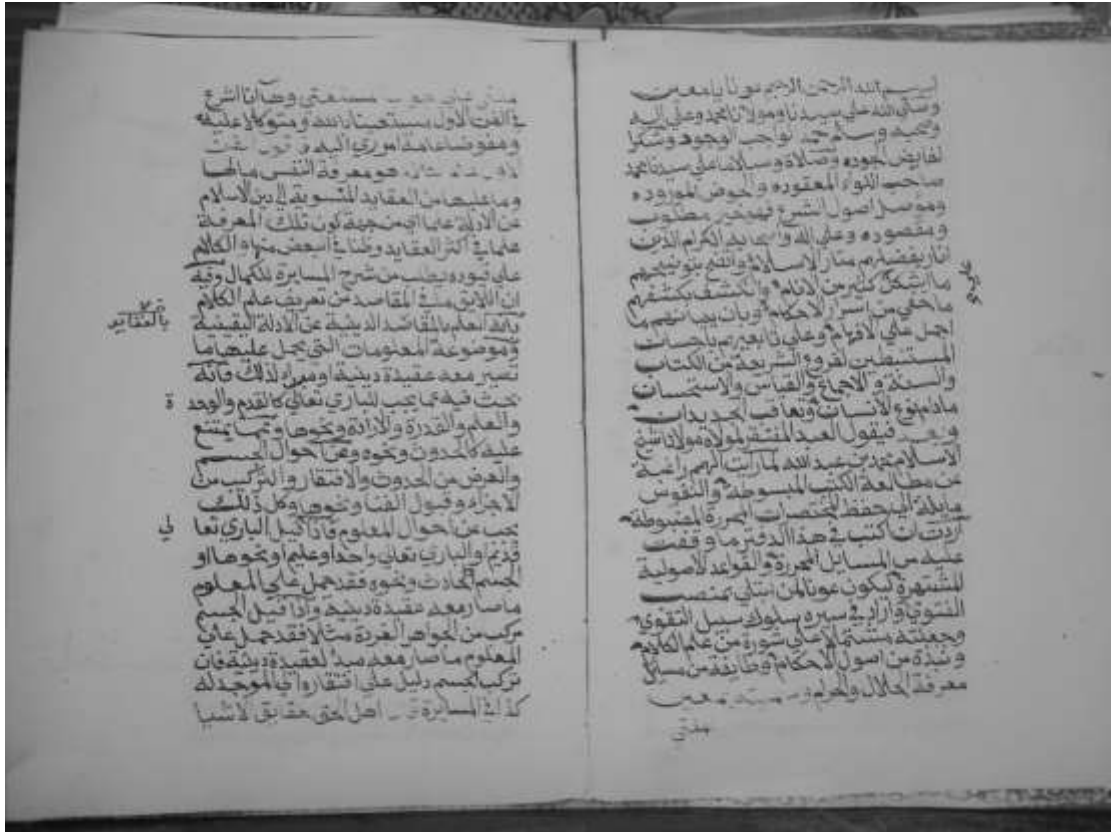 بسم الله الرحمن الرحيم عونك يا معين
وصلى الله على سيدنا ومولانا محمد وعلى اله
وصحبه وسلم حمد لواجب الوجود وشكرا
لفايض لجوده وصلاة وسلاما على سيدنا محمد
صاحب اللواء المعقوده والحوض الموروده
وموصل اصول الشرع فهو خير مطلوب
ومقصوده وعلى اله واصحابه الكرام الذين
انار بفضلهم منار الاسلام واتضح بتوضيحهم
ما اشكل كثير من الانام وانكشف بكشفهم
ما خفي من اسرار الاحكام وبان ببيانهم ما
اجمل على الافهام وعلى تابعيهم باحسان
المستنبطين لفروع الشريعة من الكتاب
والسنة والاجماع والقياس والاستحسان
مادام نوع الانسان وتعاقب الجديدان
وبعد فيقول العبد المفتقر لمولاه مولانا شيخ
الاسلام محمد بن عبد الله لما رايت الهمم راغبة
عن مطالعة الكتب المبسوطة والنفوس
مايلة الى حفظ المختصرات المحررة المضبوطة
اردت ان اكتب في هذا الدفتر ما وقفت
عليه من المسايل المحررة والقواعد الاصولية
المشتهرة ليكون عونا لمن ابتلي بمنصب
الفتوى واراد في سيره سلوك سبيل التقوى
وجعلته مشتملا على من علم الكلام
ونبذة من اصول الاحكام وطايفة من مسايل
معرفة الحلال والحرام وسميته معين
المفتي
المفتي على جواب المستفتي وها انا اشرع
في الفن الاول مستعينا بالله ومتوكلا عليه
ومفوضا عامة اموري اليه الفن
الاول هو معرفة النفس مالها
وما عليها من العقايد المنسوبة الى دين الاسلام
عن الادلة علما اي من جهة كون تلك المعرفة
علما في اكثر العقايد وظنا في البعض منها والكلام
على قيوده يطلب من شرح المسايرة للكمال وفيه
ان اللايق في المقاصد من تعريف علم الكلام
بانه العلم بالمقاصد الدينية عن الادلة اليقينية
بالعقايد
وموضوعه المعلومات التي يحمل عليها ما
تصير معه عقيدة دينية او مبدا لذلك فانه
يبحث فيه عما يجب للباري تعالى كالقدم والوحدة
والعلم والقدرة والارادة ونحوها وعما يمتنع
عليه كالحدوث ونحوه وعن احوال الجسم
والعرض من الحدوث والافتقار والتركب من
الاجزاء وقبول الفنا ونحوها وكل ذلك
بحث عن احوال المعلوم فاذا قيل الباري تعالى
قديم او الباري تعالى واحد او عليم او نحوها او
الجسم الحادث ونحوه فقد حمل على المعلوم
ما صار معه عقيدة دينية واذا قيل الجسم
مركب من الجواهر الفردة مثلا فقد حمل على
المعلوم ما صار معه مبدا لعقيدة دينية فان
تركب الجسم دليل على افتقاره الى الموجد له
كذا في المسايرة قال اهل الحق حقايق الاشيا